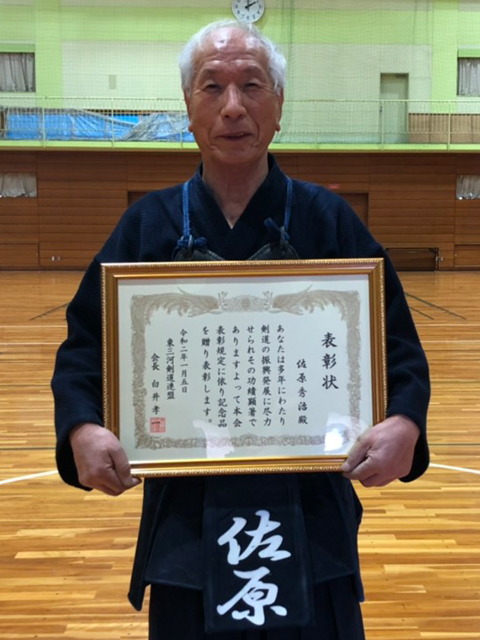 表彰状
佐原秀浩殿
あなたは多年にわたり
剣道の振興発展に尽力
せられその功績顕著で
ありますよって本会
表彰規定に依り記念品
を贈り表彰します。
令和二年一月五日
東三河剣道連盟
会長 白井孝
佐原